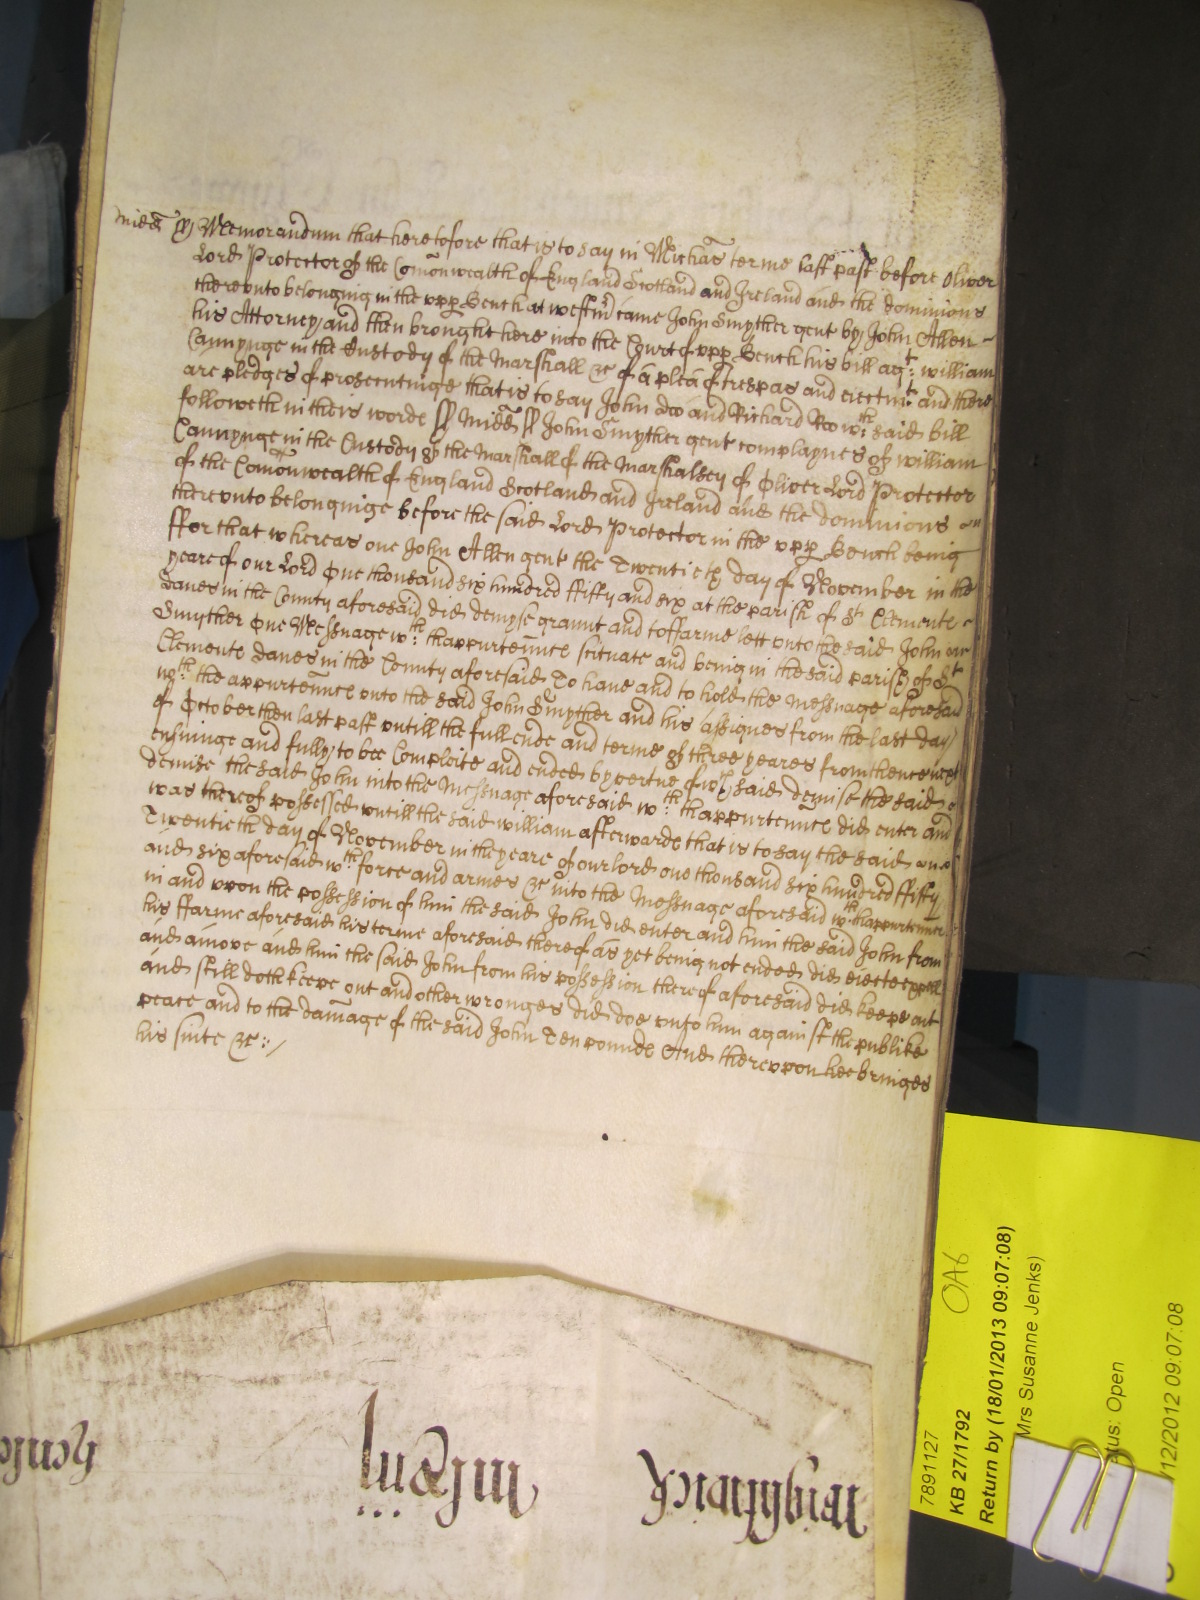 Midd ss Memorandum that heretofore that is to say in Michas terme last past before Oliver
Lord Protector of the Comonwealth of England Scotland and Ireland and the dominions
therevnto belonging in the vpp Bench at westmr came John Smyther gent by John Allen
his Attorney and then brought here into the Court of vpp Bench his bill agt: william
Cannynge in the Custody of the Marshall &c of a plea of trespas and eiectmt: and there
are pledges of prosecutinge that is to say John doo and Richard Roo wch: said bill
followeth in theis words ss Midd ss John Smyther gent complaynes of william
Cannynge in the Custody of the Marshall of the Marshalsey of Oliver Lord Protector
of the Comonwealth of England Scotland and Ireland and the dominions
therevnto belonginge before the said Lord Protector in the vpp Bench being
ffor that whereas one John Allen gent the Twentieth day of November in the
yeare of our Lord One thousand six hundred ffifty and six at the parish of St Clemente
Danes in the County aforesaid did demyse graunt and to ffarme lett vnto the said John
Smyther One Messuage wth: thappurtennce scituate and being in the said parish of St
Clemente Danes in the County aforesaid To haue and to hold the Messuage aforesaid
wth: the appurtennce vnto the said John Smyther and his Assignes from the last day
of October then last past vntill the full ende and terme of three yeares from thence next
ensuinge and fully to bee Compleite and ended by vertue of wch said demise the said
demise the said John into the Messuage aforesaid wth: thappurtennce did enter and
was thereof possessed vntill the said william afterwards that is to say the said
Twentieth day of November in the yeare of our lord one thousand six hundred ffifty
and six aforesaid wth: force and armes &c into the Messuage aforesaid wth: thappurtennce
in and vpon the possession of him the said John did enter and him the said John from
his ffarme aforesaid his terme aforesaid thereof as yet being not ended did eiecte expell
and amove and him the said John from his possession thereof aforesaid did keepe out
and still doth keepe out and other wronges did doe vnto him against the publike
peace and to the damage of the said John Ten pounds And therevpon hee bringes
his suite &c
7891127
OA6
KB 27/1792
Return by (18/01/2013 09:07:08)
Mrs Susanne Jenks)
tus: Open
/12/2012 09:07:08